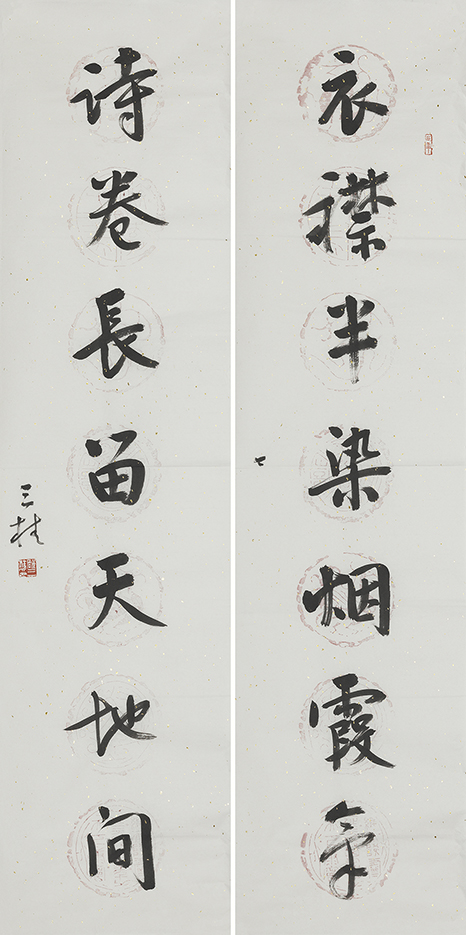 衣襟半染烟霞气
诗卷長留天地间
三桂